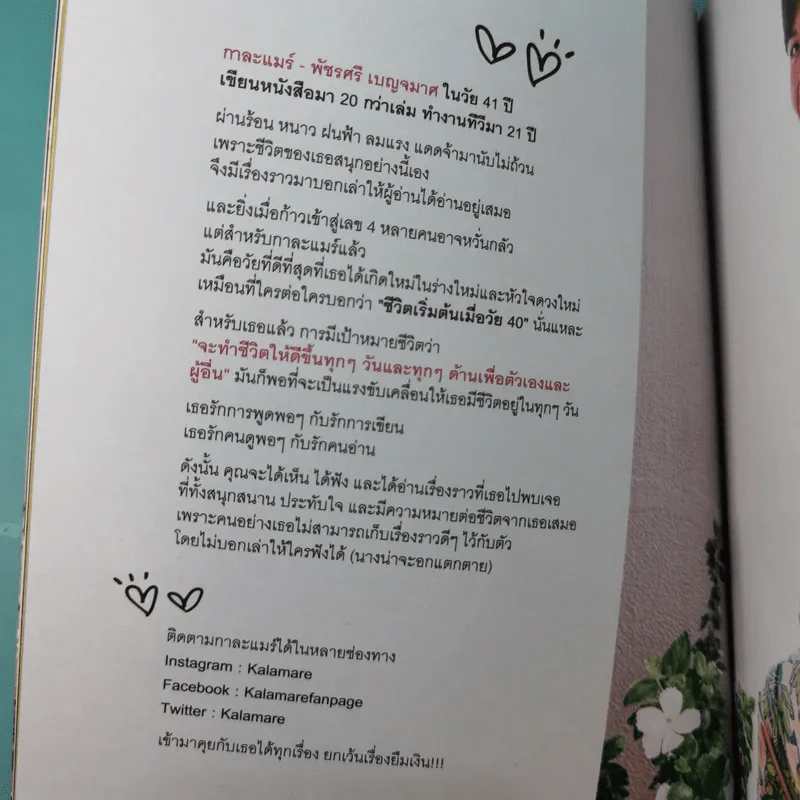 กาละแมร์ - พัชรศรี เบญจมาศ ในวัย 41 ปี
เขียนหนังสือมา 20 กว่าเล่ม ทำงานทีวีมา 21 ปี
ผ่านร้อน หนาว ฝนฟ้า ลมแรง แดดจ้ามานับไม่ถ้วน
เพราะชีวิตของเธอสนุกอย่างนี้เอง
จึงมีเรื่องราวมาบอกเล่าให้ผู้อ่านได้อ่านอยู่เสมอ
และยิ่งเมื่อก้าวเข้าสู่เลข 4 หลายคนอาจหวั่นกลัว
แต่สำหรับกาละแมร์แล้ว
มันคือวัยที่ดีที่สุดที่เธอได้เกิดใหม่ในร่างใหม่และหัวใจดวงใหม่
เหมือนที่ใครต่อใครบอกว่า "ชีวิตเริ่มต้นเมื่อวัย 40" นั่นแหละ
สำหรับเธอแล้ว การมีเป้าหมายชีวิตว่า
"จะทำชีวิตให้ดีขึ้นทุกๆ วันและทุกๆ ด้านเพื่อตัวเองและ
ผู้อื่น" มันก็พอที่จะเป็นแรงขับเคลื่อนให้เธอมีชีวิตอยู่ในทุกๆ วัน
เธอรักการพูดพอๆ กับรักการเขียน
เธอรักคนดูพอๆ กับรักคนอ่าน
ดังนั้น คุณจะได้เห็น ได้ฟัง และได้อ่านเรื่องราวที่เธอไปพบเจอ
ที่ทั้งสนุกสนาน ประทับใจ และมีความหมายต่อชีวิตจากเธอเสมอ
เพราะคนอย่างเธอไม่สามารถเก็บเรื่องราวดีๆ ไว้กับตัว
โดยไม่บอกเล่าให้ใครฟังได้ (นางน่าจะอกแตกตาย)
ติดตามกาละแมร์ได้ในหลายช่องทาง
Instagram : Kalamare
Facebook : Kalamarefanpage
Twitter : Kalamare
เข้ามาคุยกับเธอได้ทุกเรื่อง ยกเว้นเรื่องยืมเงิน!!!